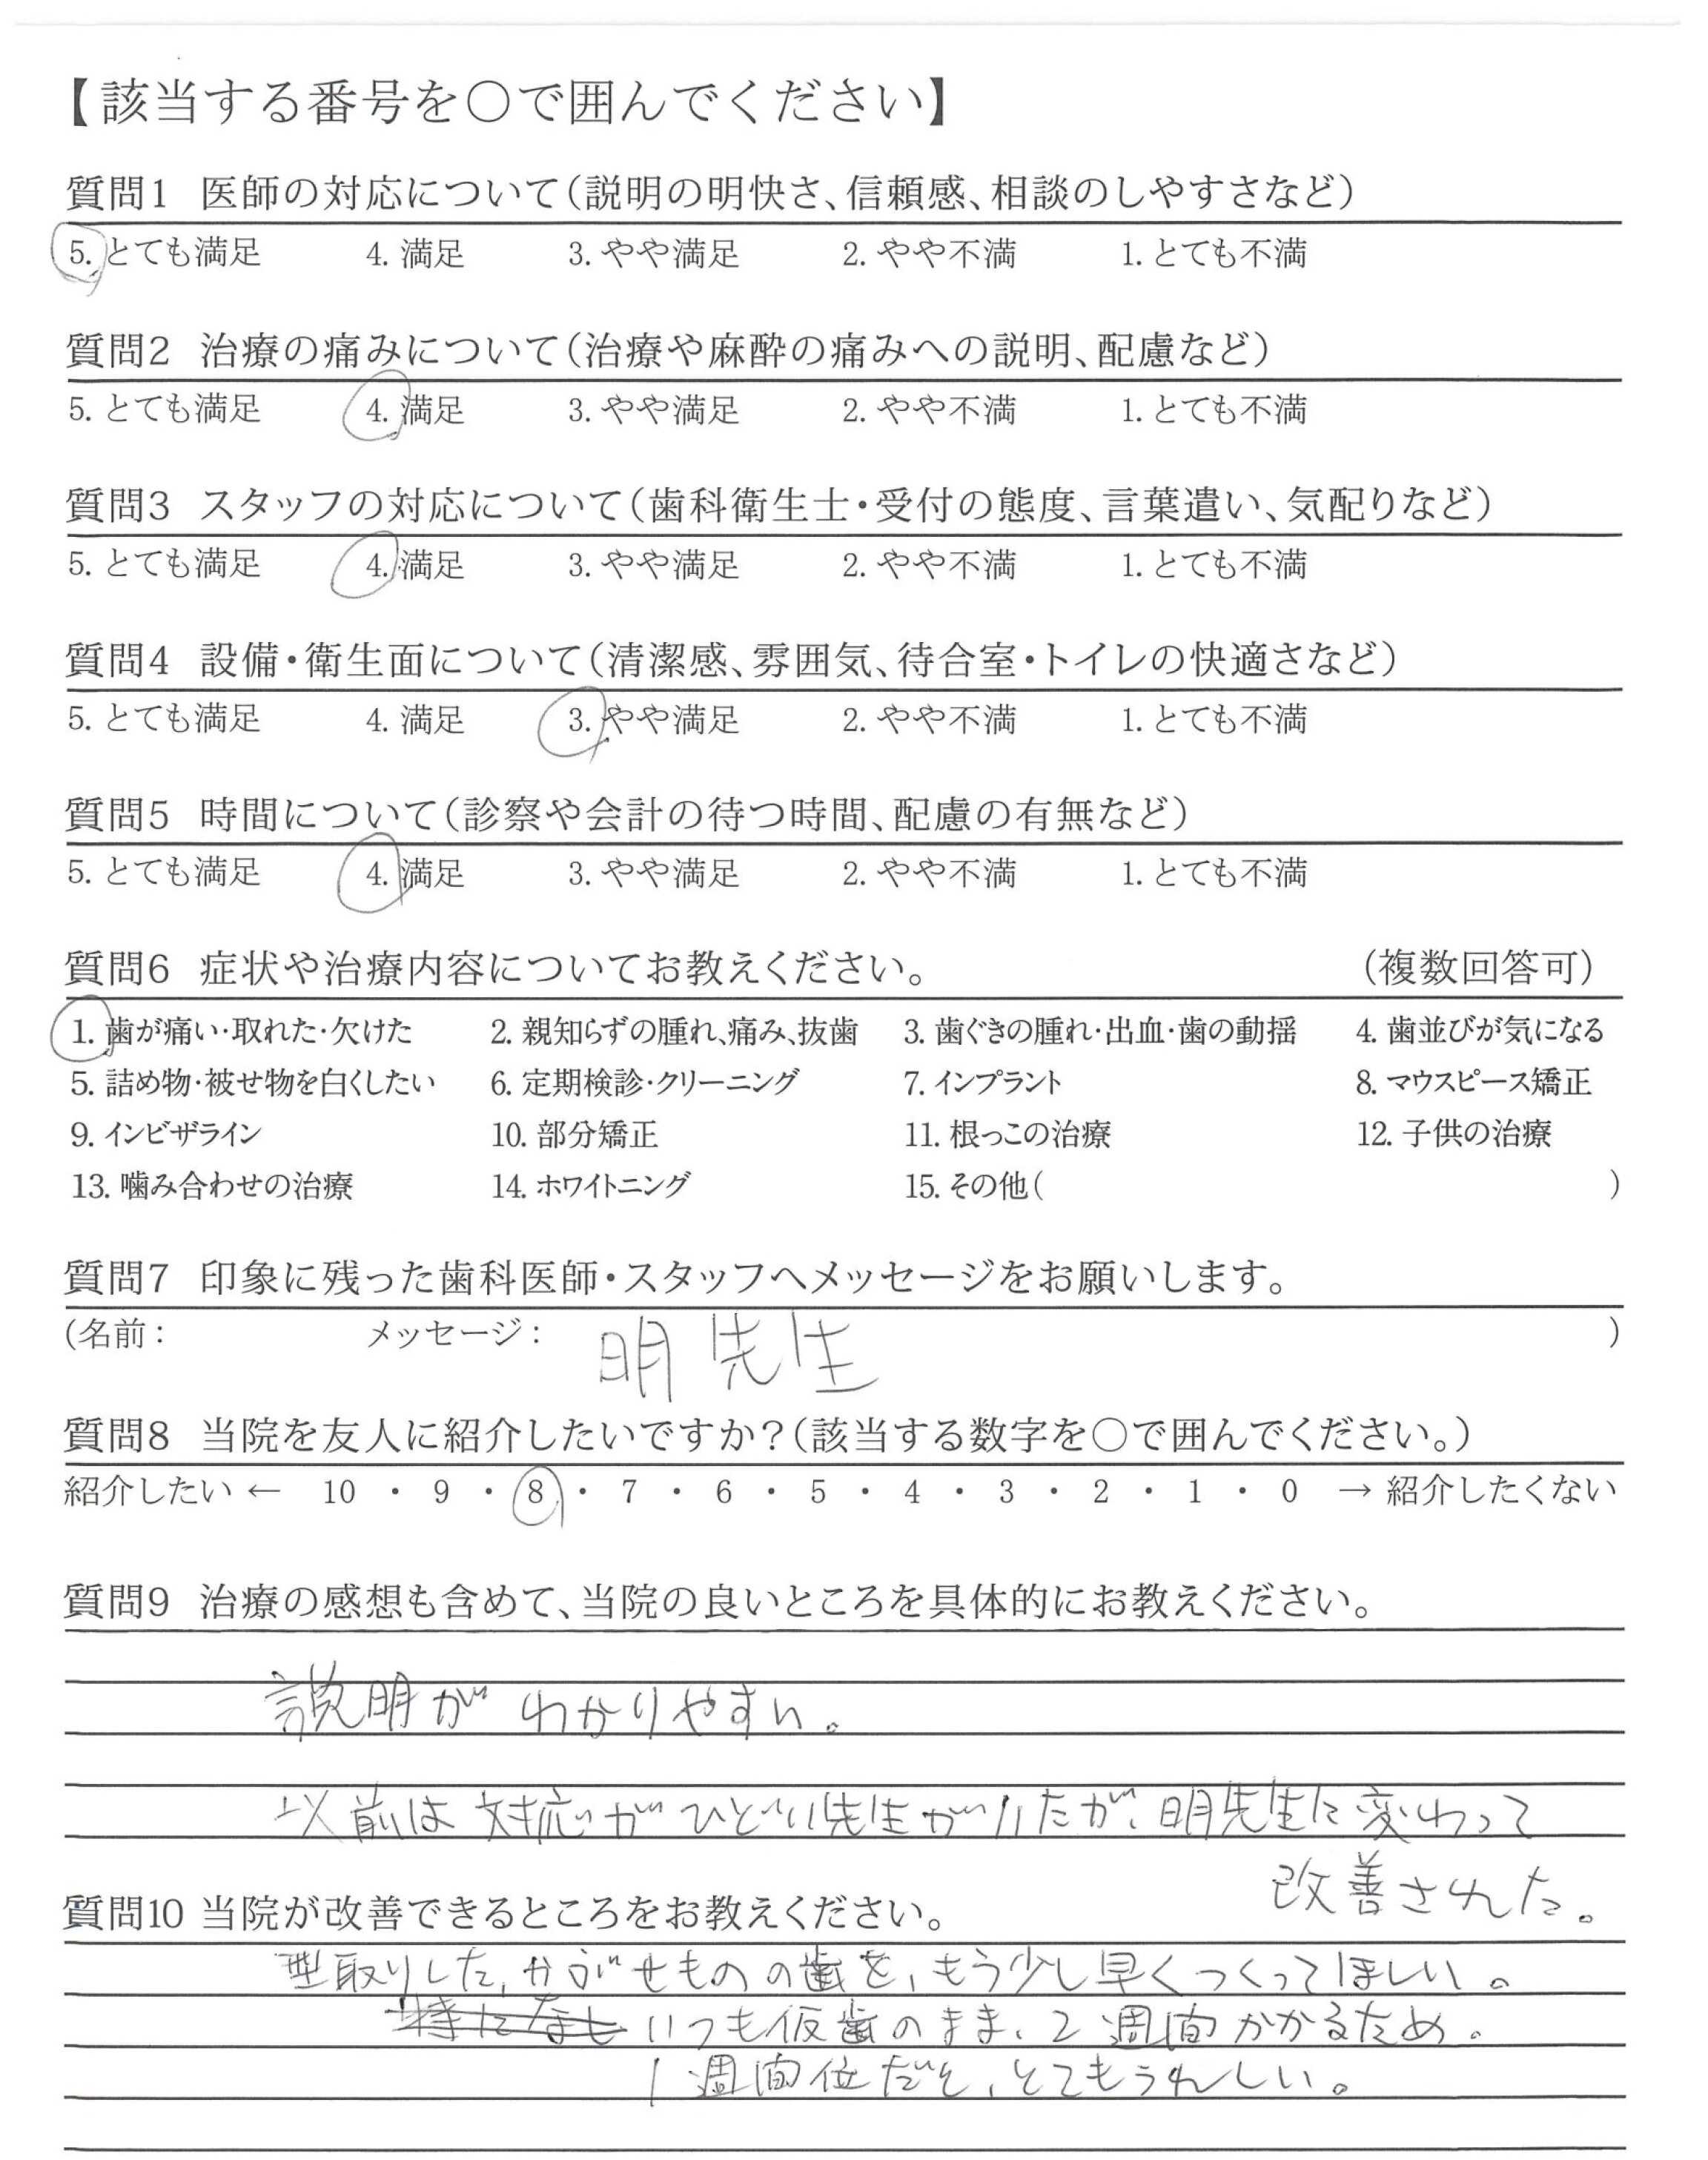 【該当する番号を〇で囲んでください】
質問1 医師の対応について(説明の明快さ、信頼感、相談のしやすさなど)
5. とても満足 4. 満足 3. やや満足 2. やや不満 1. とても不満
質問2 治療の痛みについて(治療や麻酔の痛みへの説明、配慮など)
5. とても満足 4. 満足 3. やや満足 2. やや不満 1. とても不満
質問3 スタッフの対応について(歯科衛生士・受付の態度、言葉遣い、気配りなど)
5. とても満足 4. 満足 3. やや満足 2. やや不満 1. とても不満
質問4 設備・衛生面について(清潔感、雰囲気、待合室・トイレの快適さなど)
5. とても満足 4. 満足 3. やや満足 2. やや不満 1. とても不満
質問5 時間について(診察や会計の待つ時間、配慮の有無など)
5. とても満足 4. 満足 3. やや満足 2. やや不満 1. とても不満
質問6 症状や治療内容についてお教えください。 (複数回答可)
1. 歯が痛い・取れた・欠けた 2. 親知らずの腫れ、痛み、抜歯 3. 歯ぐきの腫れ・出血・歯の動揺 4. 歯並びが気になる
5. 詰め物・被せ物を白くしたい 6. 定期検診・クリーニング 7. インプラント 8. マウスピース矯正
9. インビザライン 10. 部分矯正 11. 根っこの治療 12. 子供の治療
13. 噛み合わせの治療 14. ホワイトニング 15. その他( )
質問7 印象に残った歯科医師・スタッフへメッセージをお願いします。
(名前: メッセージ: 明先生 )
質問8 当院を友人に紹介したいですか?(該当する数字を〇で囲んでください。)
紹介したい ← 10 ・ 9 ・ 8 ・ 7 ・ 6 ・ 5 ・ 4 ・ 3 ・ 2 ・ 1 ・ 0 → 紹介したくない
質問9 治療の感想も含めて、当院の良いところを具体的にお教えください。
説明がわかりやすい。
以前は対応がひどい先生がいたが、明先生に変わって
改善された。
質問10 当院が改善できるところをお教えください。
型取りした、かぶせものの歯を、もう少し早くつくってほしい。
特になし いつも仮歯のまま、2週間かかるため。
1週間位だと、とてもうれしい。